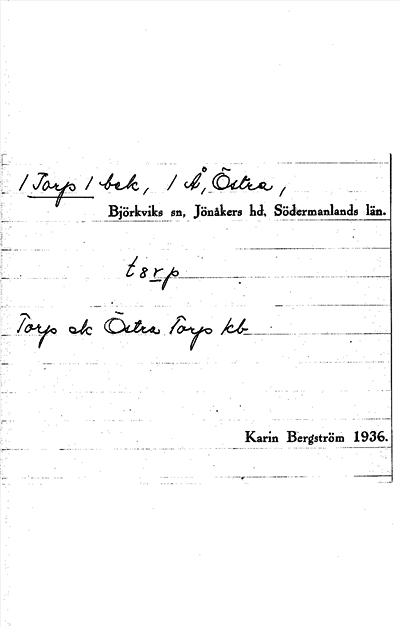 / Torp / bek, / Å, Östra,
Björkviks sn, Jönåkers hd, Södermanlands län.
tsrp
Torp ek Östra Torp kb
Karin Bergström 1936.